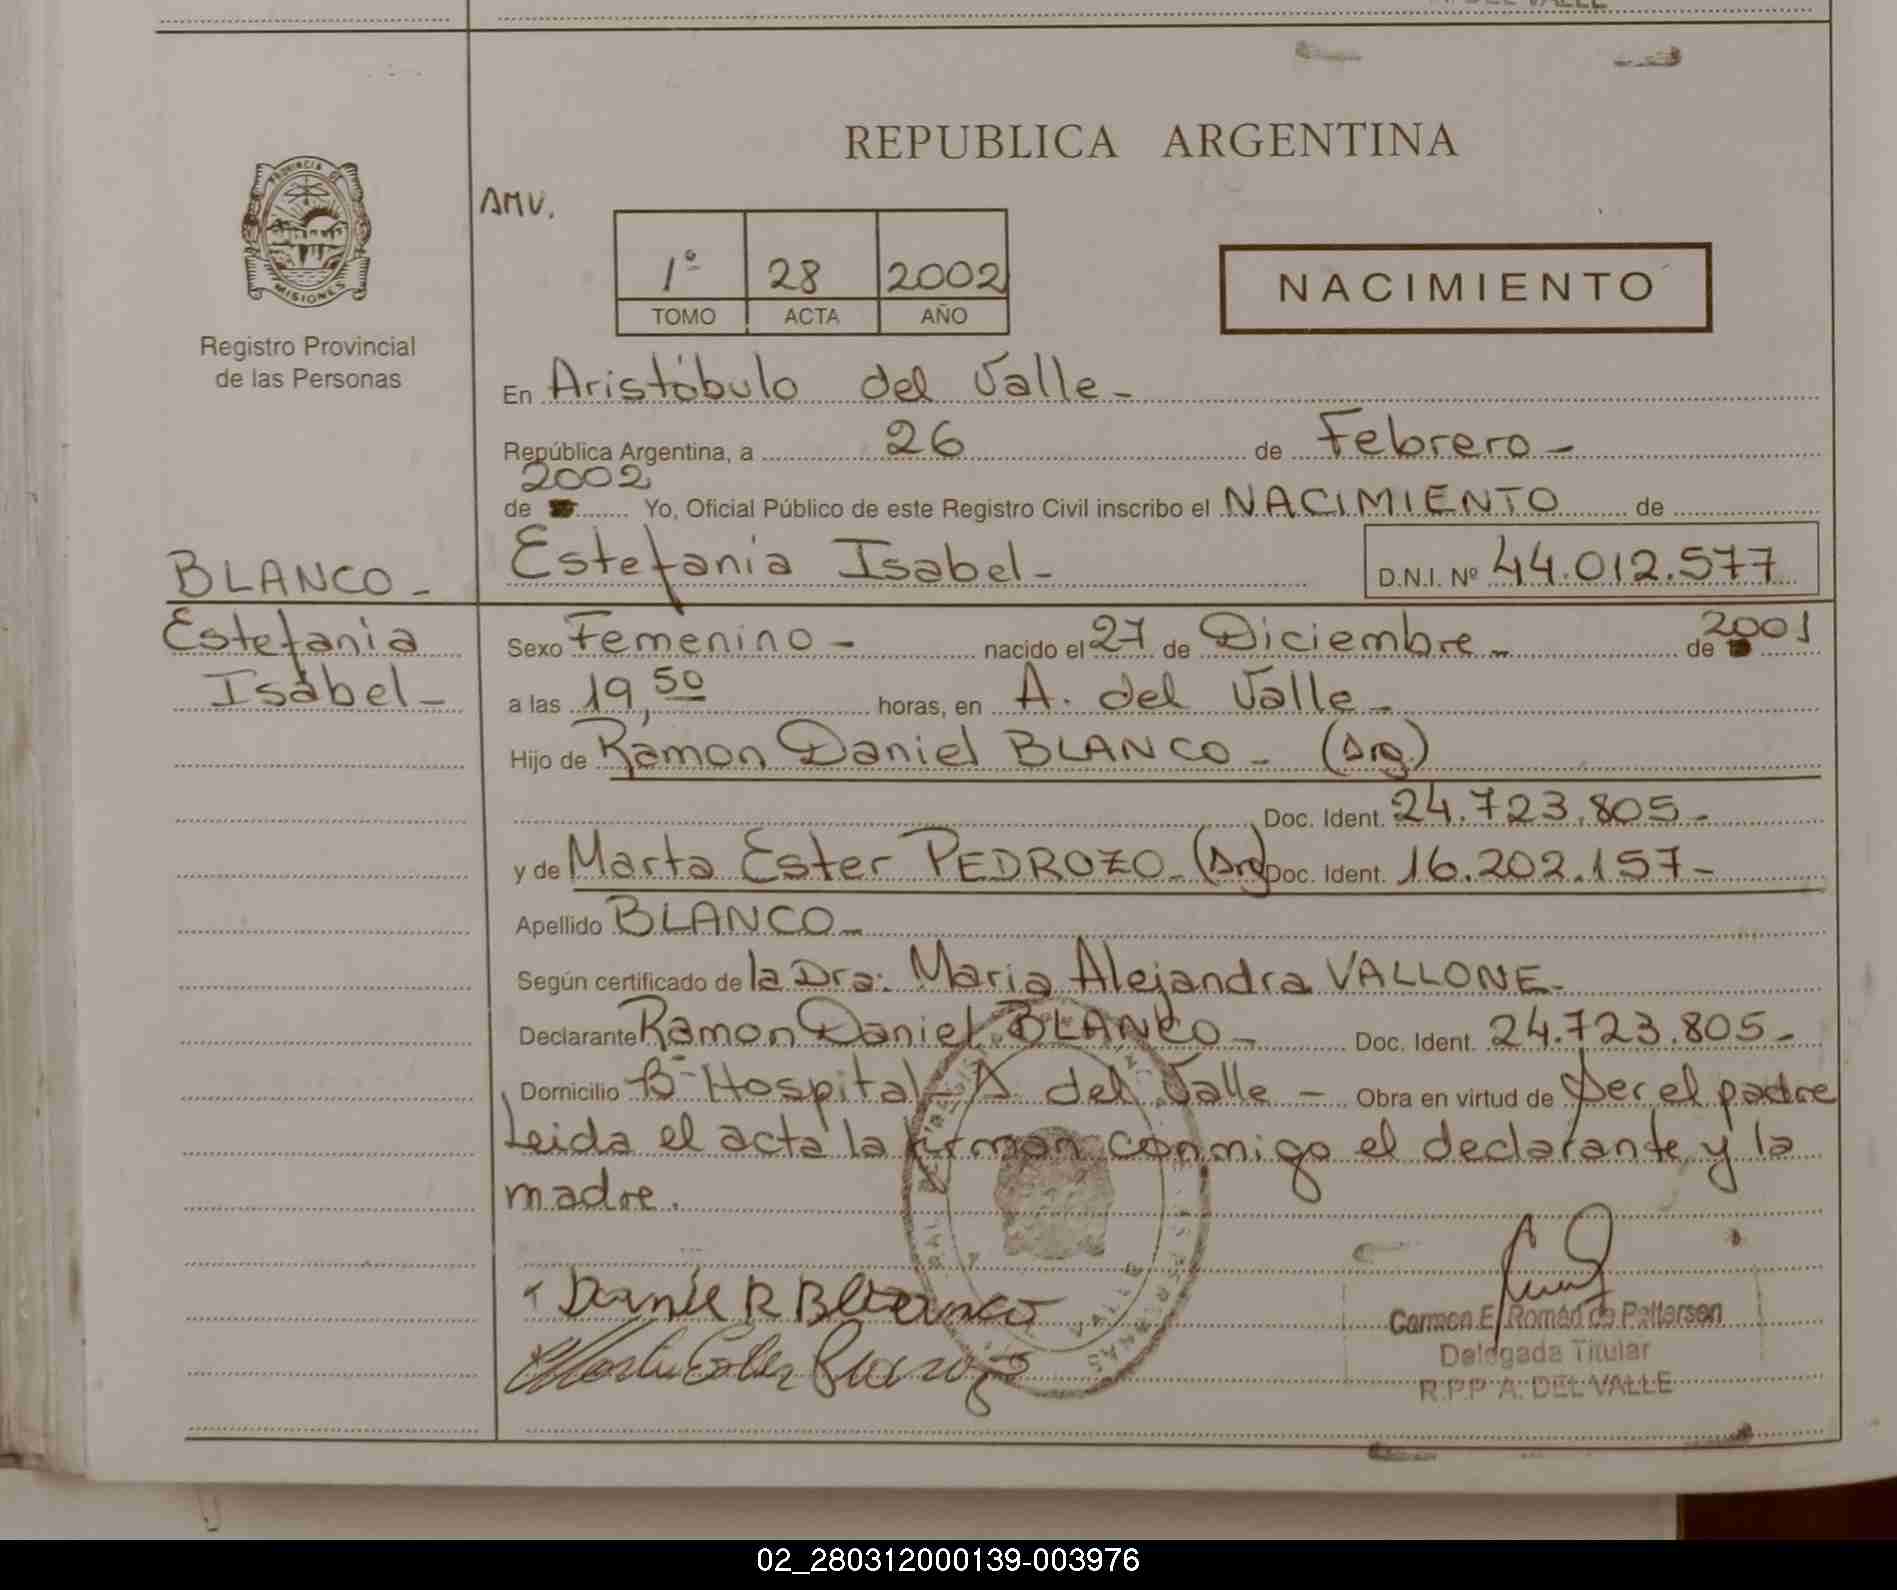 REPUBLICA ARGENTINA
PROVINCIA DE
MISIONES
Registro Provincial
de las Personas
AMV.
1º 28 2002
TOMO ACTA AÑO
NACIMIENTO
En Aristóbulo del Valle-
República Argentina, a 26 de Febrero-
2002
de Yo, Oficial Público de este Registro Civil inscribo el NACIMIENTO de
BLANCO- Estefania Isabel- D.N.I. Nº 44.012.577
Estefania
Isabel-
2001
Sexo Femenino- nacido el 27 de Diciembre- de
a las 19,50 horas, en A. del Valle-
Hijo de Ramon Daniel BLANCO- (Arg.)
Doc. Ident. 24.723.805-
y de Marta Ester PEDROZO-(Arg) Doc. Ident. 16.202.157-
Apellido BLANCO-
Según certificado de la Dra: Maria Alejandra VALLONE-
Declarante Ramon Daniel BLANCO- Doc. Ident. 24.723.805-
Domicilio Bº Hospital-A del Valle- Obra en virtud de Ser el padre
Leida el acta la firman conmigo el declarante y la
madre.
Carmen E. Román de Pettersen
Delegada Titular
R.P.P A. DEL VALLE
02_280312000139-003976